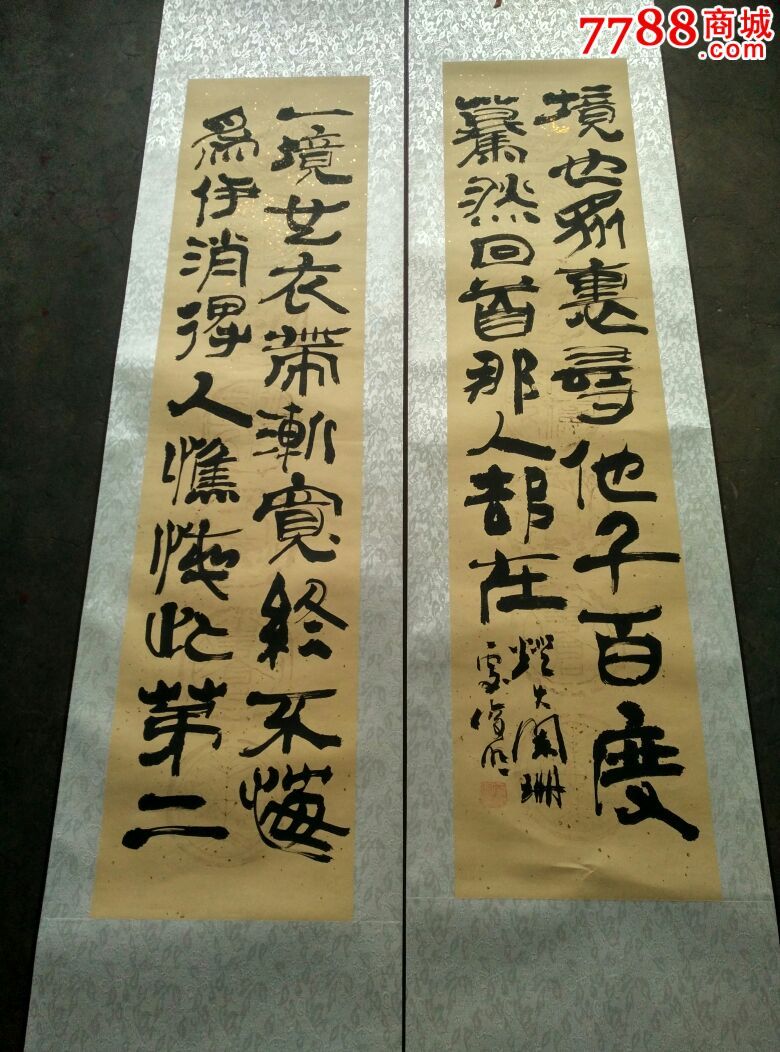 7788商城
.com
一境也衣帶漸寬終不悔
爲伊消得人憔悴此第二
境也眾裏尋他千百度
驀然回首那人卻在
燈火闌珊
處